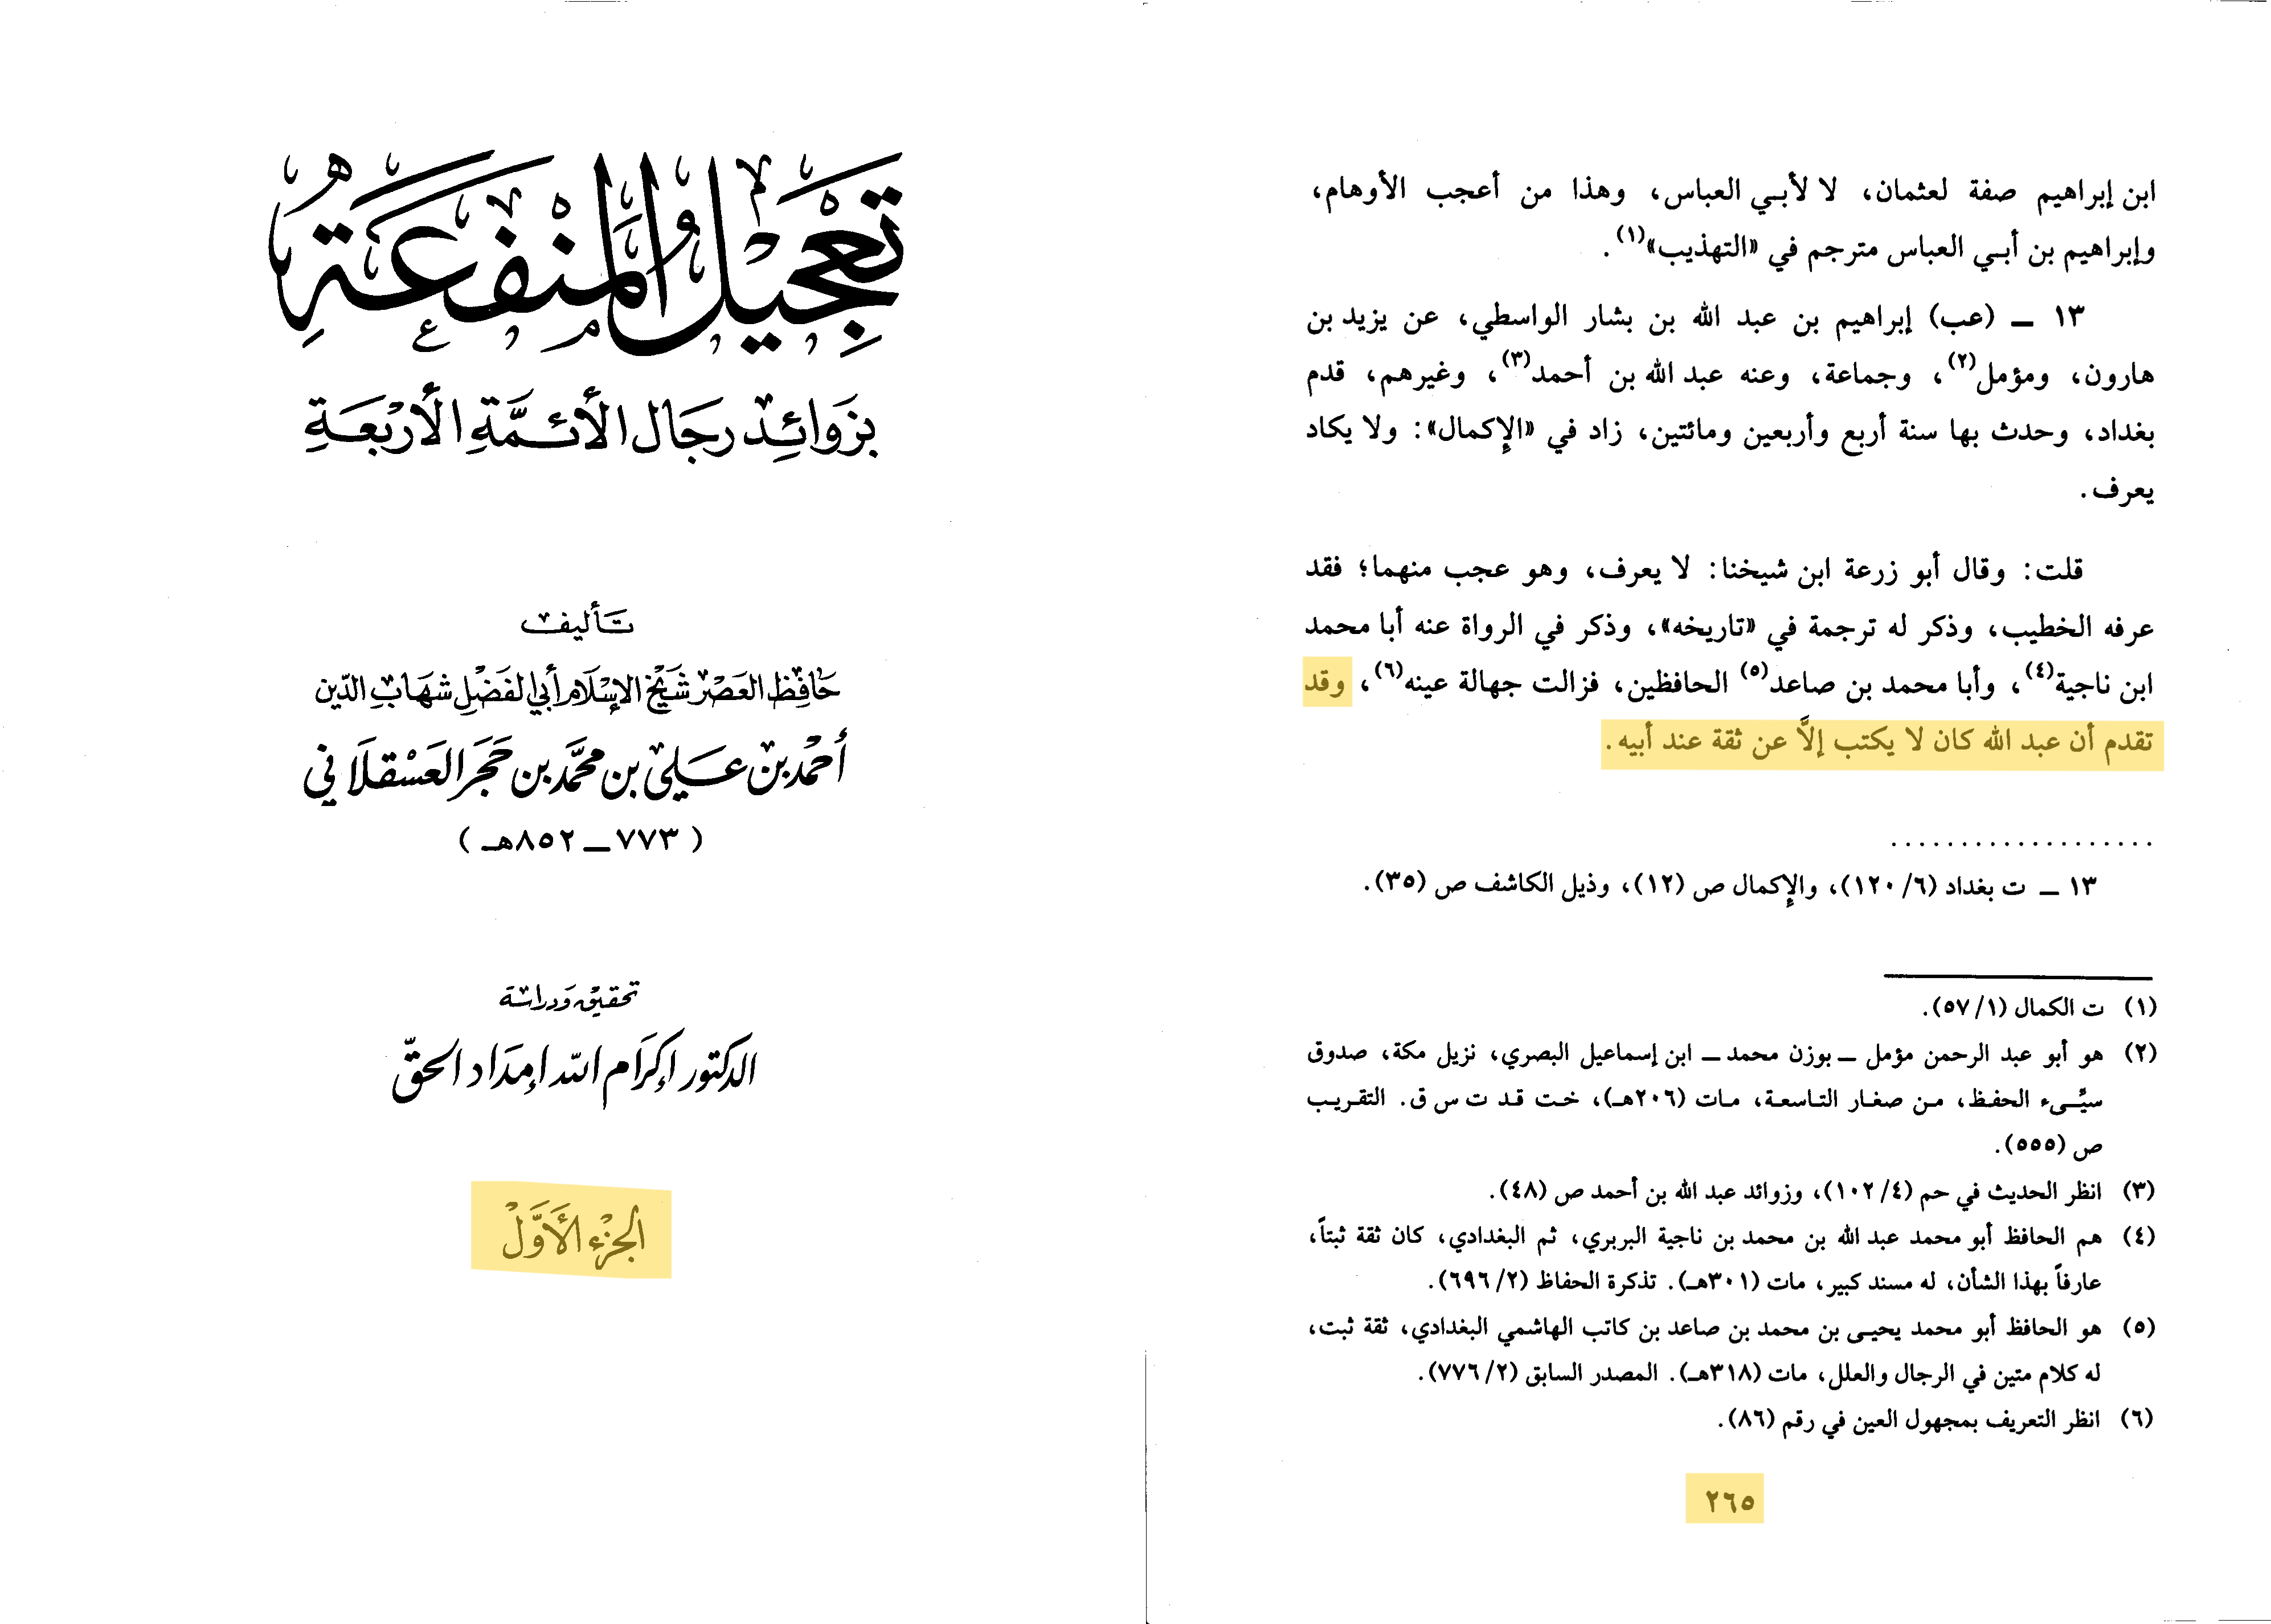 تَعْجِيلُ المَنْفَعَةِ
بِزَوَائِدِ رِجَالِ الأَئِمَّةِ الأَرْبَعَةِ
تأليف
حَافِظ العَصْر شَيْخ الإِسْلَام أبي الفَضْلِ شهَابِ الدّين
أحْمَد بن عَلي بن محَمَّد بن حَجَر العَسْقلَاني
(٧٧٣ ــ ٨٥٢هـ)
تحقيق ودراسة
الدكتور إكرام الله إمداد الحق
الجُزْء الأَوَّلْ
ابن إبراهيم صفة لعثمان، لا لأبـي العباس، وهذا من أعجب الأوهام،
وإبراهيم بن أبـي العباس مترجم في «التهذيب»(١).
١٣ ــ (عب) إبراهيم بن عبد الله بن بشار الواسطي، عن يزيد بن
هارون، ومؤمل(٢)، وجماعة، وعنه عبد الله بن أحمد(٣)، وغيرهم، قدم
بغداد، وحدث بها سنة أربع وأربعين ومائتين، زاد في «الإكمال»: ولا يكاد
يعرف.
قلت: وقال أبو زرعة ابن شيخنا: لا يعرف، وهو عجب منهما؛ فقد
عرفه الخطيب، وذكر له ترجمة في «تاريخه»، وذكر في الرواة عنه أبا محمد
ابن ناجية(٤)، وأبا محمد بن صاعد(٥) الحافظين، فزالت جهالة عينه(٦)، وقد
تقدم أن عبد الله كان لا يكتب إلَّا عن ثقة عند أبيه.
...................
١٣ ــ ت بغداد (٦/ ١٢٠)، والإكمال ص (١٢)، وذيل الكاشف ص (٣٥).
(١) ت الكمال (١/ ٥٧).
(٢) هو أبو عبد الرحمن مؤمل ــ بوزن محمد ــ ابن إسماعيل البصري، نزيل مكة، صدوق
سيِّـىء الحفظ، من صغار التاسعة، مات (٢٠٦هـ)، خت قد ت س ق. التقريب
ص (٥٥٥).
(٣) انظر الحديث في حم (٤/ ١٠٢)، وزوائد عبد الله بن أحمد ص (٤٨).
(٤) هم الحافظ أبو محمد عبد الله بن محمد بن ناجية البربري، ثم البغدادي، كان ثقة ثبتاً،
عارفاً بهذا الشأن، له مسند كبير، مات (٣٠١هـ). تذكرة الحفاظ (٢/ ٦٩٦).
(٥) هو الحافظ أبو محمد يحيـى بن محمد بن صاعد بن كاتب الهاشمي البغدادي، ثقة ثبت،
له كلام متين في الرجال والعلل، مات (٣١٨هـ). المصدر السابق (٢/ ٧٧٦).
(٦) انظر التعريف بمجهول العين في رقم (٨٦).
٢٦٥